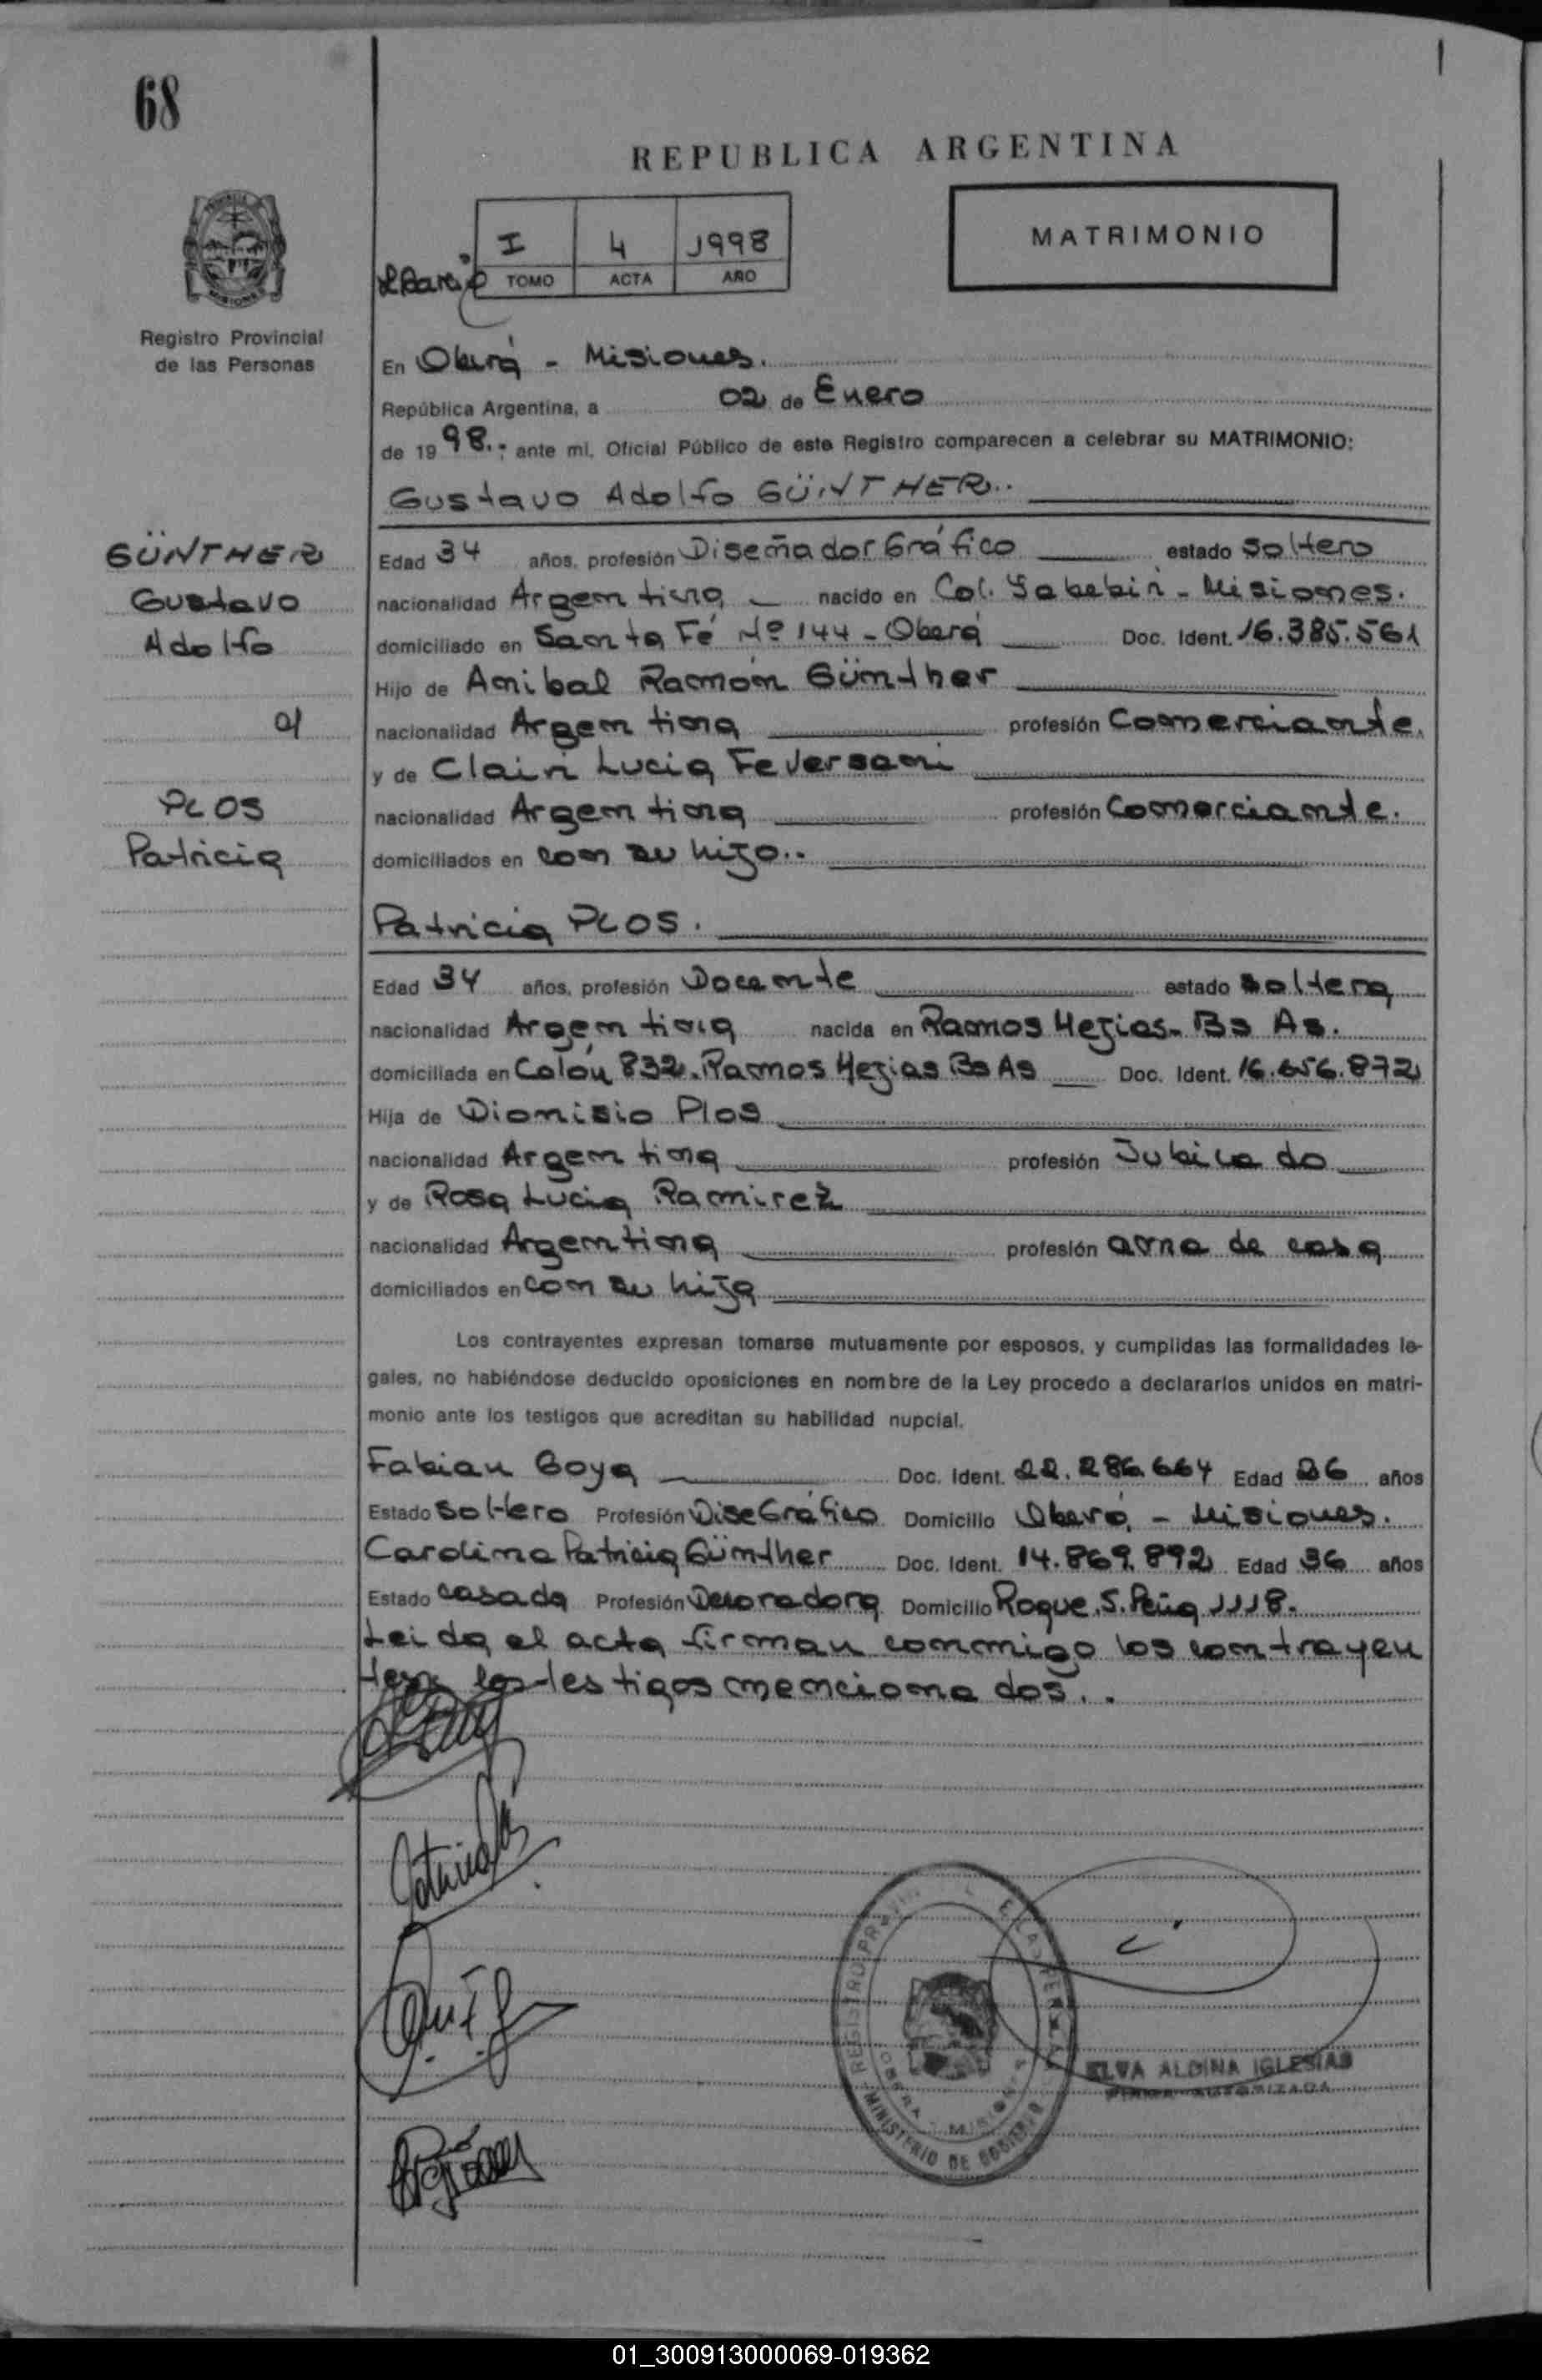 68
REPUBLICA ARGENTINA
I 4 1998
TOMO ACTA AÑO
MATRIMONIO
Registro Provincial
de las Personas
En Oberá - Misiones.
República Argentina, a 02 de Enero
de 1998.; ante mi, Oficial Público de este Registro comparecen a celebrar su MATRIMONIO:
Gustavo Adolfo GÜNTHER..
GÜNTHER
Gustavo
Adolfo
c/
PLOS
Patricia
Edad 34 años, profesión Diseñador Gráfico estado soltero
nacionalidad Argentina nacido en Col. Yabebiri - Misiones.
domiciliado en Santa Fé Nº 144 - Oberá Doc. Ident. 16.385.561
Hijo de Anibal Ramón Günther
nacionalidad Argentina profesión Comerciante.
y de Clairi Lucia Feversani
nacionalidad Argentina profesión Comerciante.
domiciliados en con su hijo..
Patricia PLOS.
Edad 34 años, profesión Docente estado soltera
nacionalidad Argentina nacida en Ramos Mejias - Bs As.
domiciliada en Colón 832. Ramos Mejias Bs As Doc. Ident. 16.656.872
Hija de Dionisio Plos
nacionalidad Argentina profesión Jubilado
y de Rosa Lucia Ramirez
nacionalidad Argentina profesión ama de casa
domiciliados en con su hija
Los contrayentes expresan tomarse mutuamente por esposos, y cumplidas las formalidades le-
gales, no habiéndose deducido oposiciones en nombre de la Ley procedo a declararlos unidos en matri-
monio ante los testigos que acreditan su habilidad nupcial.
Fabian Goya Doc. Ident. 22.286.664 Edad 26 años
Estado soltero Profesión Dise Gráfico Domicilio Oberá, - Misiones.
Carolina Patricia Günther Doc. Ident. 14.869.892 Edad 36 años
Estado casada Profesión Decoradora Domicilio Roque. S. Peña 1118.
Leida el acta firman conmigo los contrayen
tes y los testigos mencionados..
REGISTRO DE LAS PERSONAS
OBERA - MISIONES
MINISTERIO DE GOBIERNO
ELVA ALDINA IGLESIAS
FIRMA AUTORIZADA
01_300913000069-019362